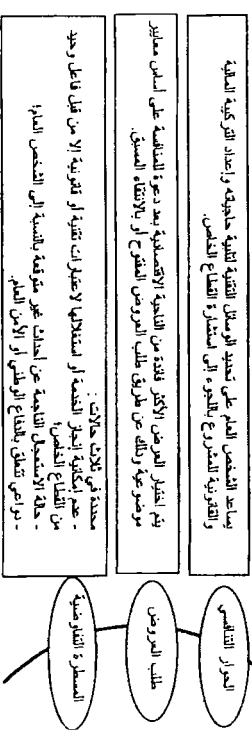 الحوار التنافسي
يساعد الشخص العام على تحديد الوسائل التقنية لتلبية حاجياته وإعداد التركيبة المالية
والقانونية للمشروع باللجوء إلى استشارة القطاع الخاص.
طلب العروض
يتم اختيار العرض الأكثر فائدة من الناحية الاقتصادية بعد دعوة للمنافسة على أساس معايير
موضوعية وذلك عن طريق طلب العروض المفتوح أو بالانتقاء المسبق.
المسطرة التفاوضية
محددة في ثلاث حالات :
- عدم إمكانية إنجاز الخدمة أو استغلالها لاعتبارات تقنية أو قانونية إلا من قبل فاعل وحيد
من القطاع الخاص؛
- حالة الاستعجال الناجمة عن أحداث غير متوقعة بالنسبة إلى الشخص العام؛
- دواعي تتعلق بالدفاع الوطني أو الأمن العام.